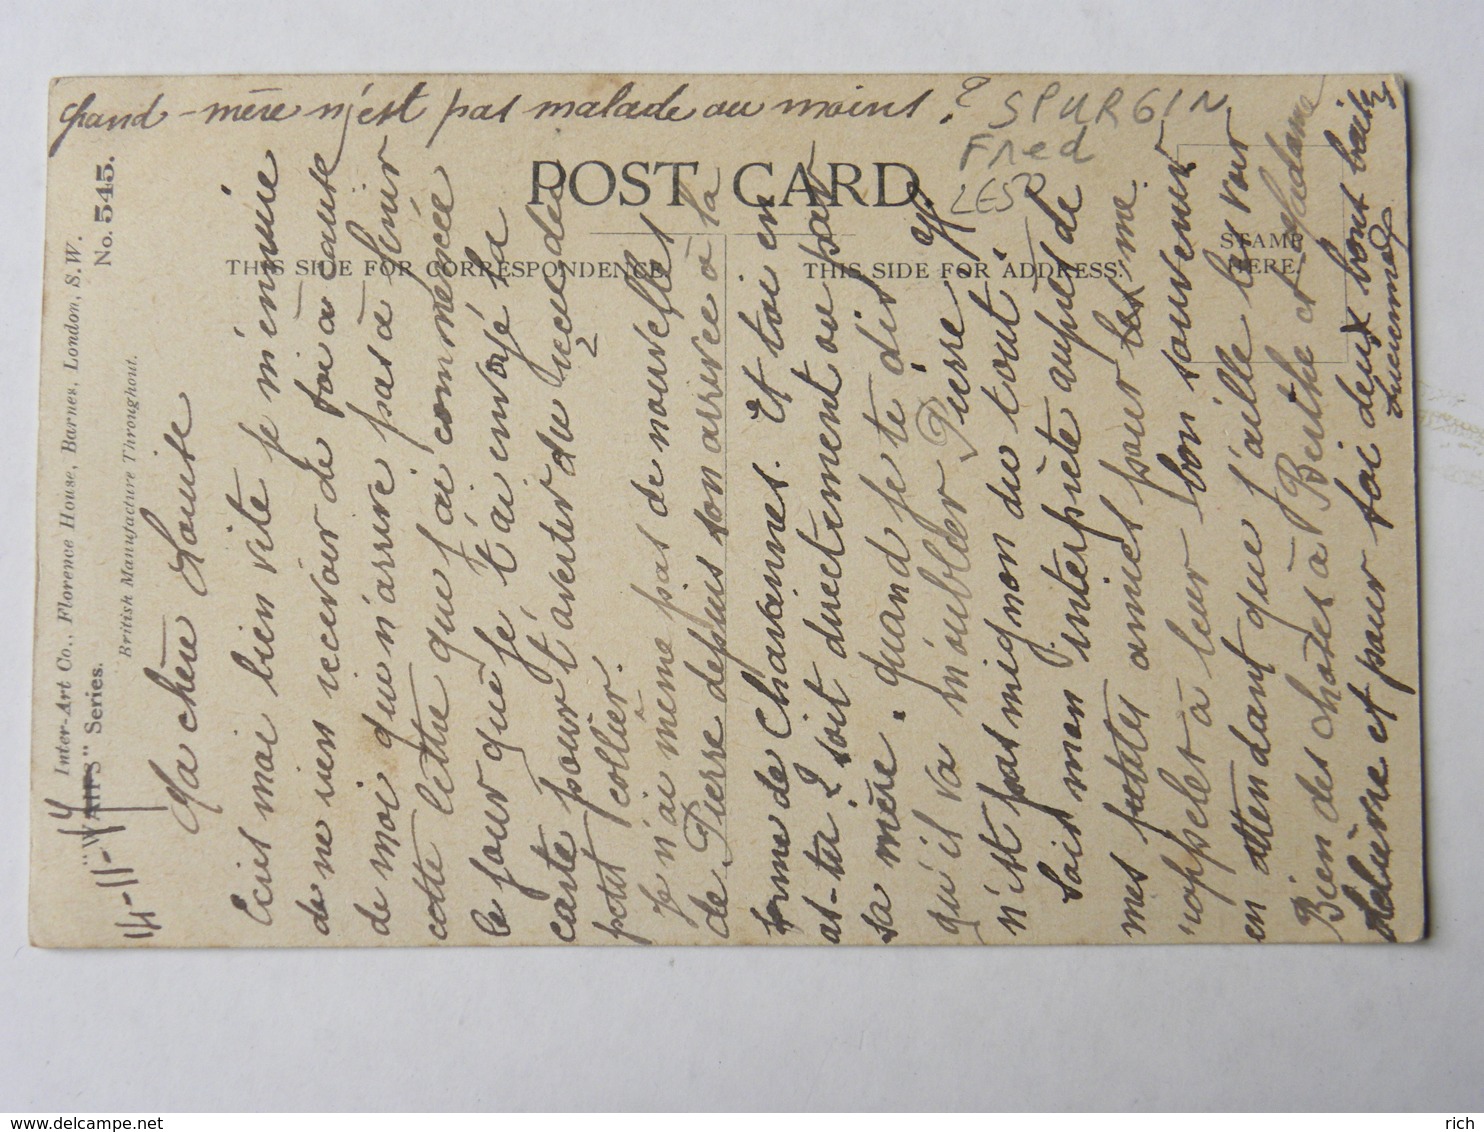 Grand-mère n'est pas malade au moins?
SPURGIN
Fred
POST CARD.
THIS SIDE FOR CORRESPONDENCE.
THIS SIDE FOR ADDRESS.
STAMP
HERE.
Inter-Art Co., Florence House, Barnes, London, S.W.
"WAIFS" Series.
No. 545.
British Manufacture Throughout.
14-11-17
Ma chère Louise
Ecris moi bien vite je m'ennuie
de ne rien recevoir de toi à cause
de moi qui n'arrive pas à finir
cette lettre que j'ai commencée
le jour que je t'ai envoyé la
carte pour t'avertir du reçu des
2
petit collier.
Je n'ai même pas de nouvelles
de Pierre depuis son arrivée à la
ferme de Chavannes. Et toi en
as-tu? soit directement ou par
sa mère. quand je te dis
qu'il va m'oublier Pierre
n'est pas mignon du tout!
Sois mon interprète auprès de
mes petites amies pour me
rappeler à leur bon souvenir
en attendant que j'aille les voir
Bien des choses à Berthe et Madame
Lelièvre et pour toi deux bons baisers